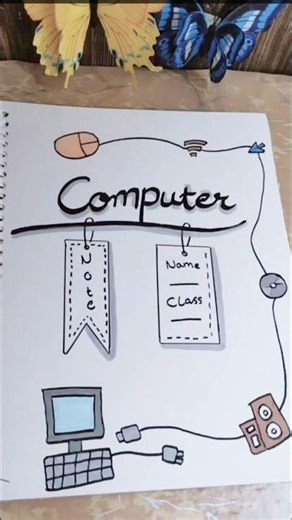 Computer
Note
Name
Class